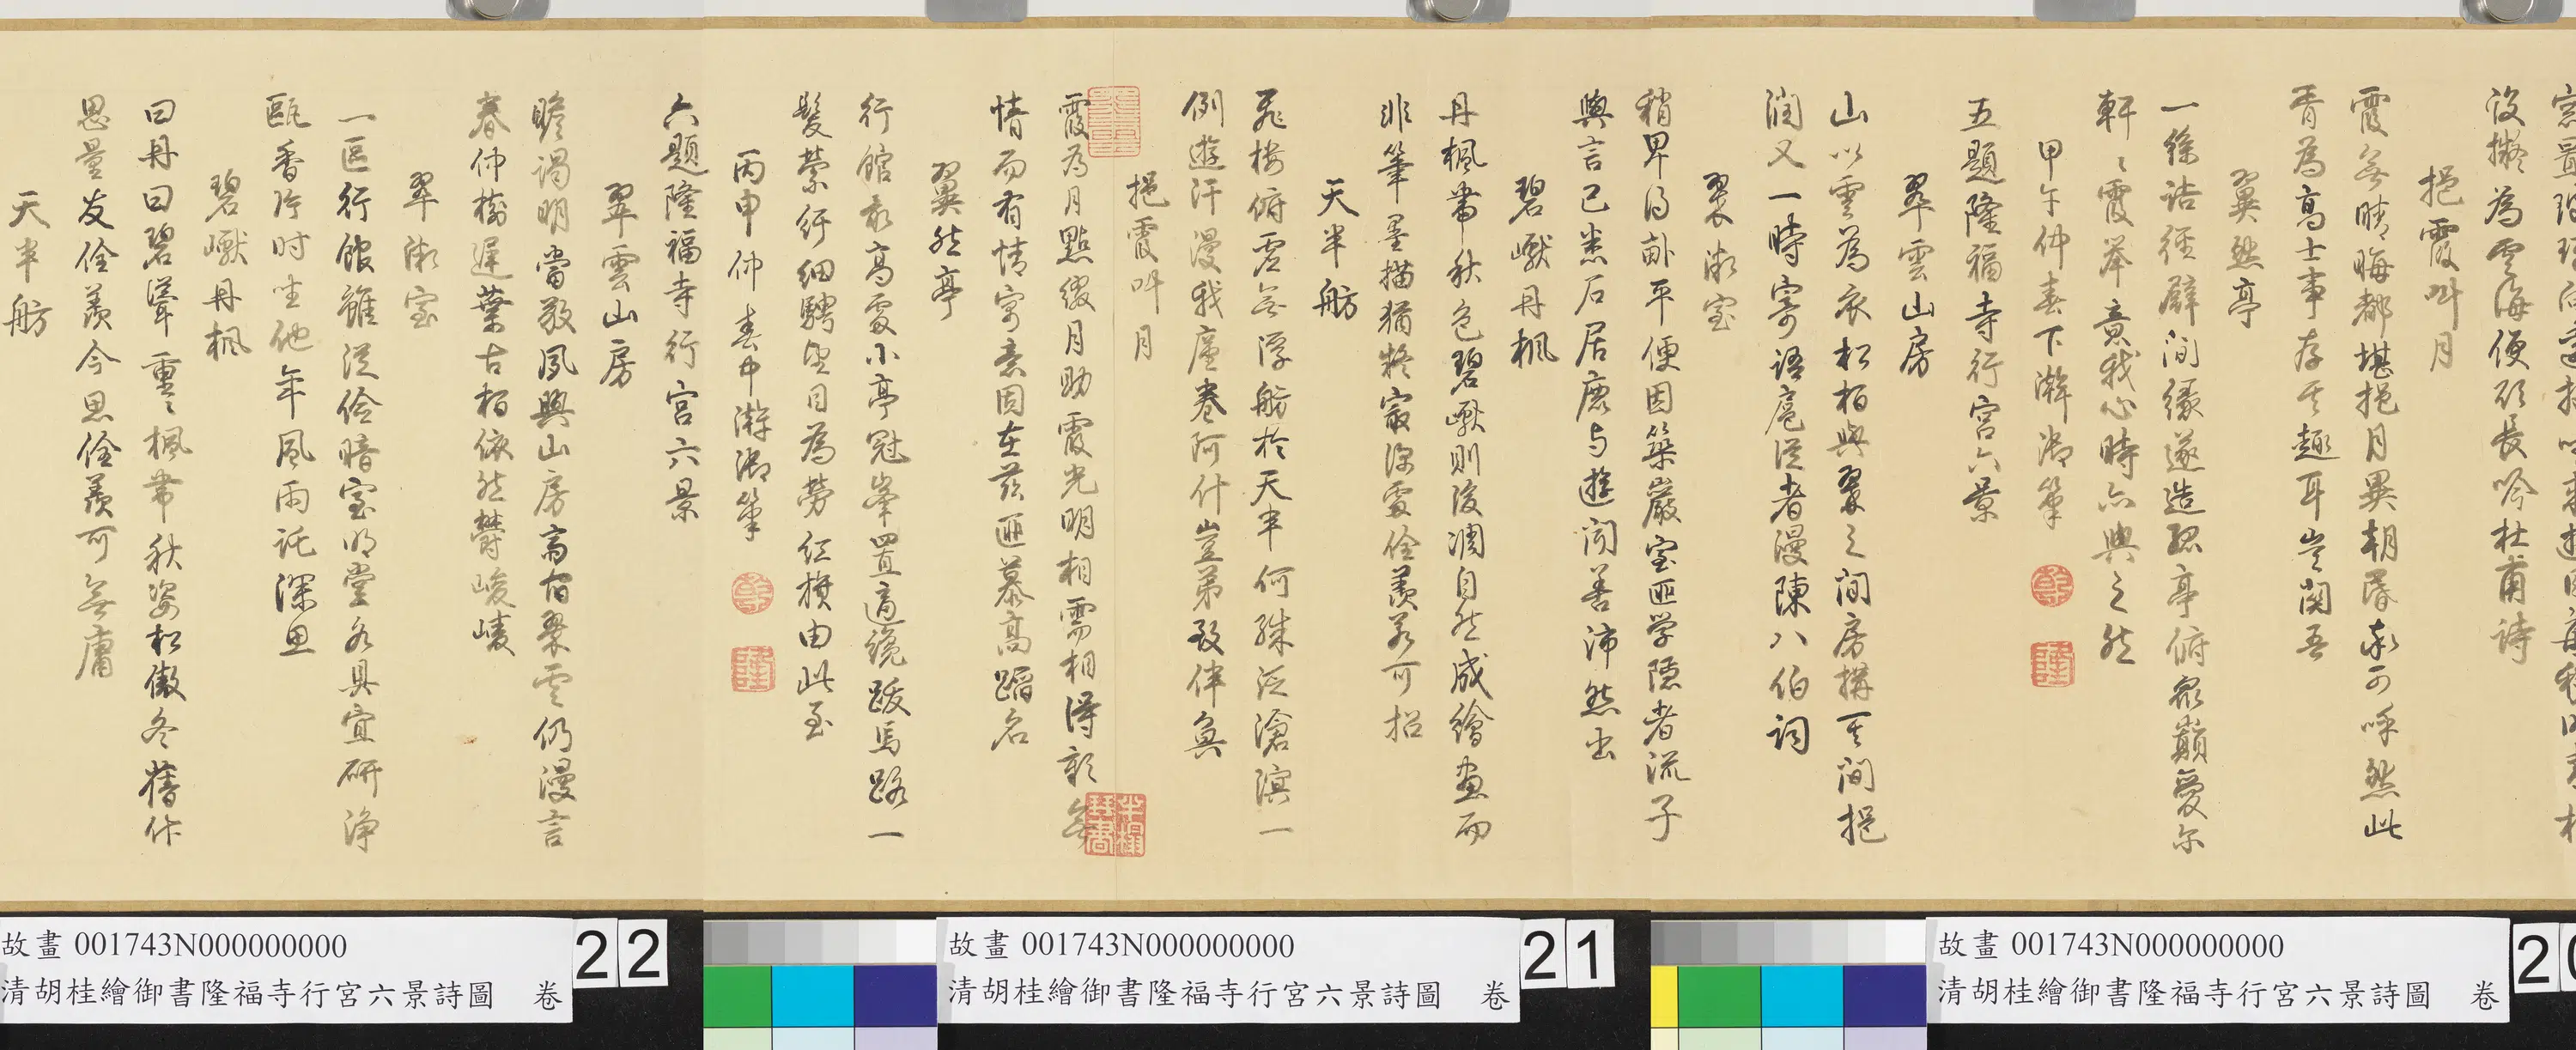 設擬為雲海便欲長吟杜甫詩
挹霞叫月
霞無晴晦都堪挹月異朝昏亦可呼然此
胥為高士事存其趣耳豈関吾
翼然亭
一條詰徑躃間緣遂造孤亭俯衆巔爰爾
軒〻霞舉意我心時亦與之然
甲午仲春下澣御筆
五題隆福寺行宮六景
翠雲山房
山以雲為衣松柏與翠之間房搆其間挹
潤又一時寄語扈從者漫陳八伯詞
翠淑室
稍卑得畝平便因築巖室匪学隱者流子
輿言已悉石居鹿与遊聞善沛然出
碧巘丹楓
丹楓帶秋色碧巘則後凋自然成繪畫而
非筆墨描猶於最深處佺羨若可招
天半舫
飛樓俯虛無浮舫於天半何殊泛滄溟一
例遊汗漫我廑卷阿什豈弟致伴奐
挹霞叫月
霞為月點綴月助霞光明相需相得彰無
情而有情寄意因在茲匪慕高蹈名
翼然亭
行館最高處小亭冠峯置適纔跋馬路一
髮縈紆細騁望目為勞紅橫由此至
丙申仲春中澣御筆
六題隆福寺行宮六景
翠雲山房
瞻謁明當敬夙興山房高宿翠雲仍漫言
春仲樹遲葉古柏依然欝峻崚
翠淑室
一區行館雖從儉暗室明堂各具宜研淨
甌香吟时坐他年風雨託深思
碧巘丹楓
曰丹曰碧聳重〻楓帶秋姿松傲冬舊作
思量友佺羨今思佺羨可無庸
天半舫
故畫 001743N000000000
清胡桂繪御書隆福寺行宮六景詩圖 卷
22
故畫 001743N000000000
清胡桂繪御書隆福寺行宮六景詩圖 卷
21
故畫 001743N000000000
清胡桂繪御書隆福寺行宮六景詩圖 卷
20